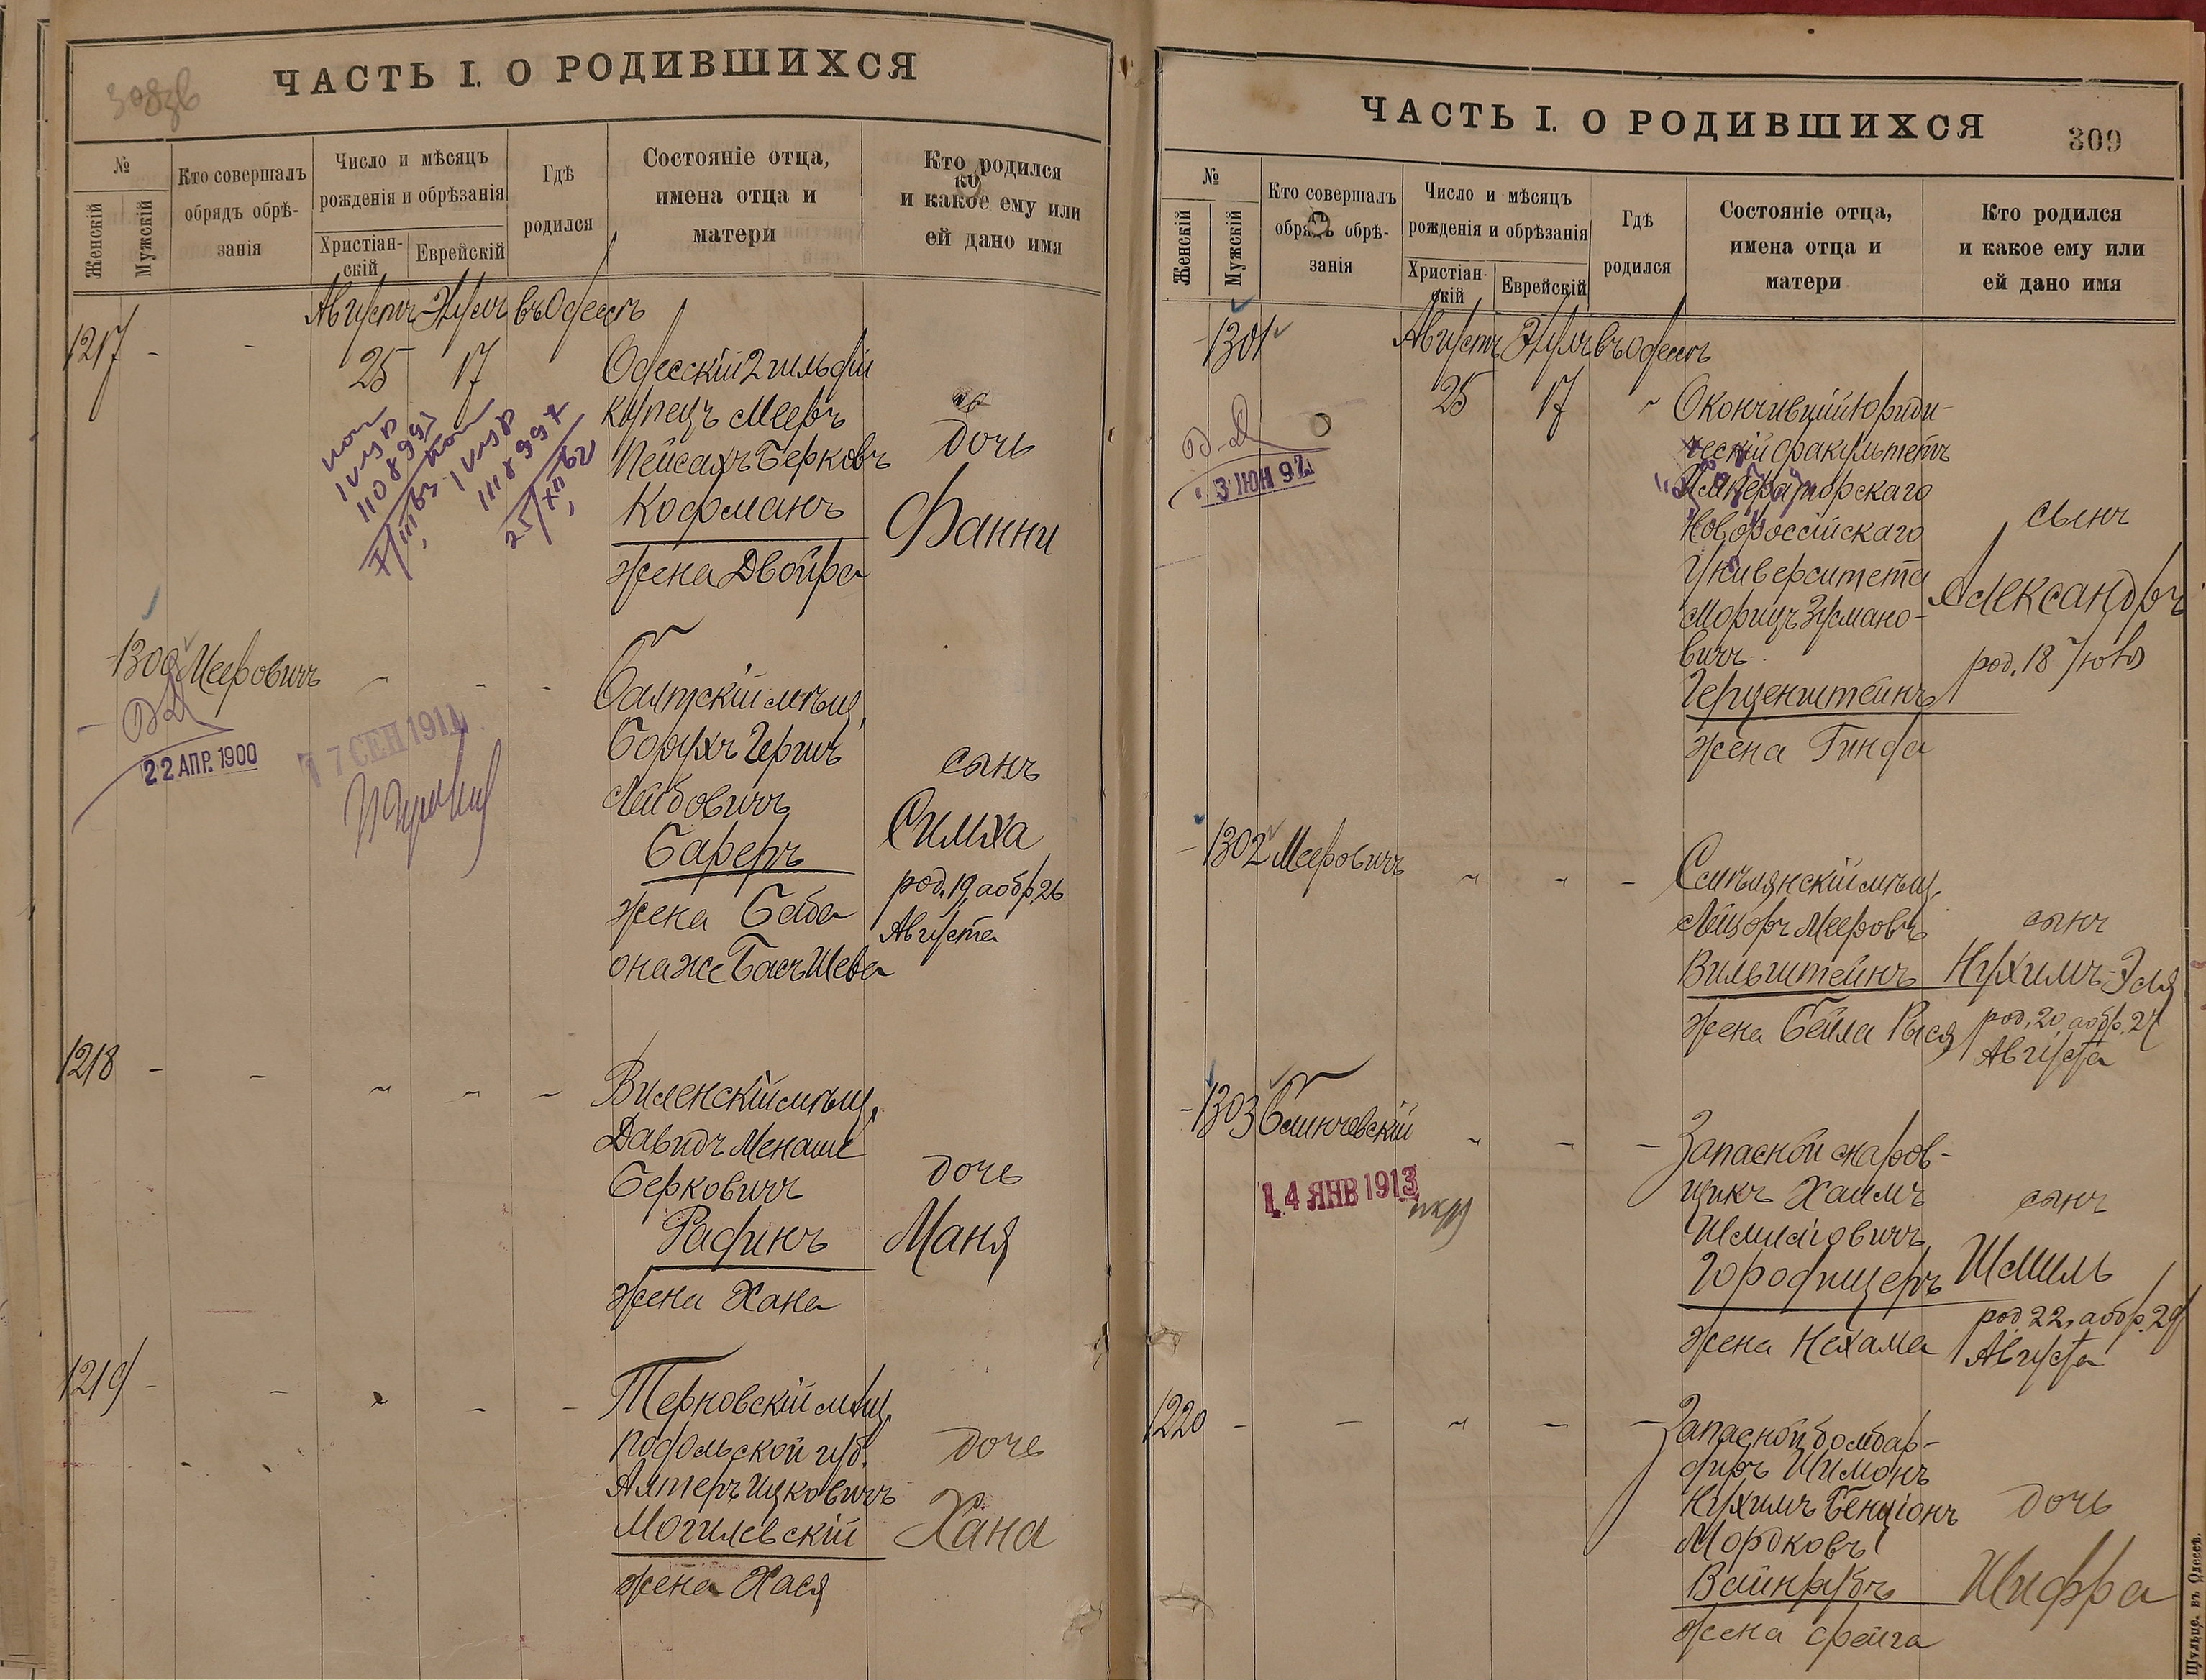 ЧАСТЬ I. О РОДИВШИХСЯ
№
Женскій
Мужскій
Кто совершалъ
обрядъ обрѣ-
занія
Число и мѣсяцъ
рожденія и обрѣзанія
Христіан-
скій
Еврейскій
Гдѣ
родился
Состояніе отца,
имена отца и
матери
Кто родился
и какое ему или
ей дано имя
Августъ Элулъ въ Одессѣ
1217 - - 25 17
Одесскій 2 гильдіи
купецъ Мееръ
Пейсахъ Берковъ
Кофманъ
жена Двойра
дочь
Фанни
1300 Мееровичъ
22 АПР. 1900
7 СЕН 1911
Балтскій мѣщ.
Борухъ Гершъ
Лейбовичъ
Бареръ
жена Баба
она же Басъ Шева
сынъ
Симха
род. 19, а обр. 26
Августа
1218 - -
Виленскій мѣщ.
Давидъ Менаше
Берковичъ
Рафинъ
жена Хана
дочь
Маня
1219 - -
Терновскій мѣщ.
Подольской губ.
Алтеръ Ицковичъ
Могилевскій
жена Хася
дочь
Хана
ЧАСТЬ I. О РОДИВШИХСЯ
309
№
Женскій
Мужскій
Кто совершалъ
обрядъ обрѣ-
занія
Число и мѣсяцъ
рожденія и обрѣзанія
Христіан-
скій
Еврейскій
Гдѣ
родился
Состояніе отца,
имена отца и
матери
Кто родился
и какое ему или
ей дано имя
Августъ Элулъ въ Одессѣ
1301 25 17
3 ІЮН 92
Окончившій Юриди-
ческій факультетъ
Императорскаго
Новороссійскаго
Университета
Морицъ Зусмано-
вичъ
Герценштейнъ
жена Гинда
сынъ
Александръ
род. 18 Іюля
1302 Мееровичъ
Смѣлянскій мѣщ.
Лейзоръ Мееровъ
Вильштейнъ
жена Бейла Рыся
сынъ
Нухимъ-Эля
род. 20, а обр. 27
Августа
1303 Блинчевскій
14 ЯНВ 1913
Запасной
Хаимъ
Шмилевичъ
Городищеръ
жена Нехама
сынъ
Шмиль
род. 22, а обр. 29
Августа
1220 - -
Запасной бомбар-
диръ Шимонъ
Нухимъ Бенціонъ
Мордковъ
Вайнрубъ
жена Фейга
дочь
Шифра
въ Одессѣ.